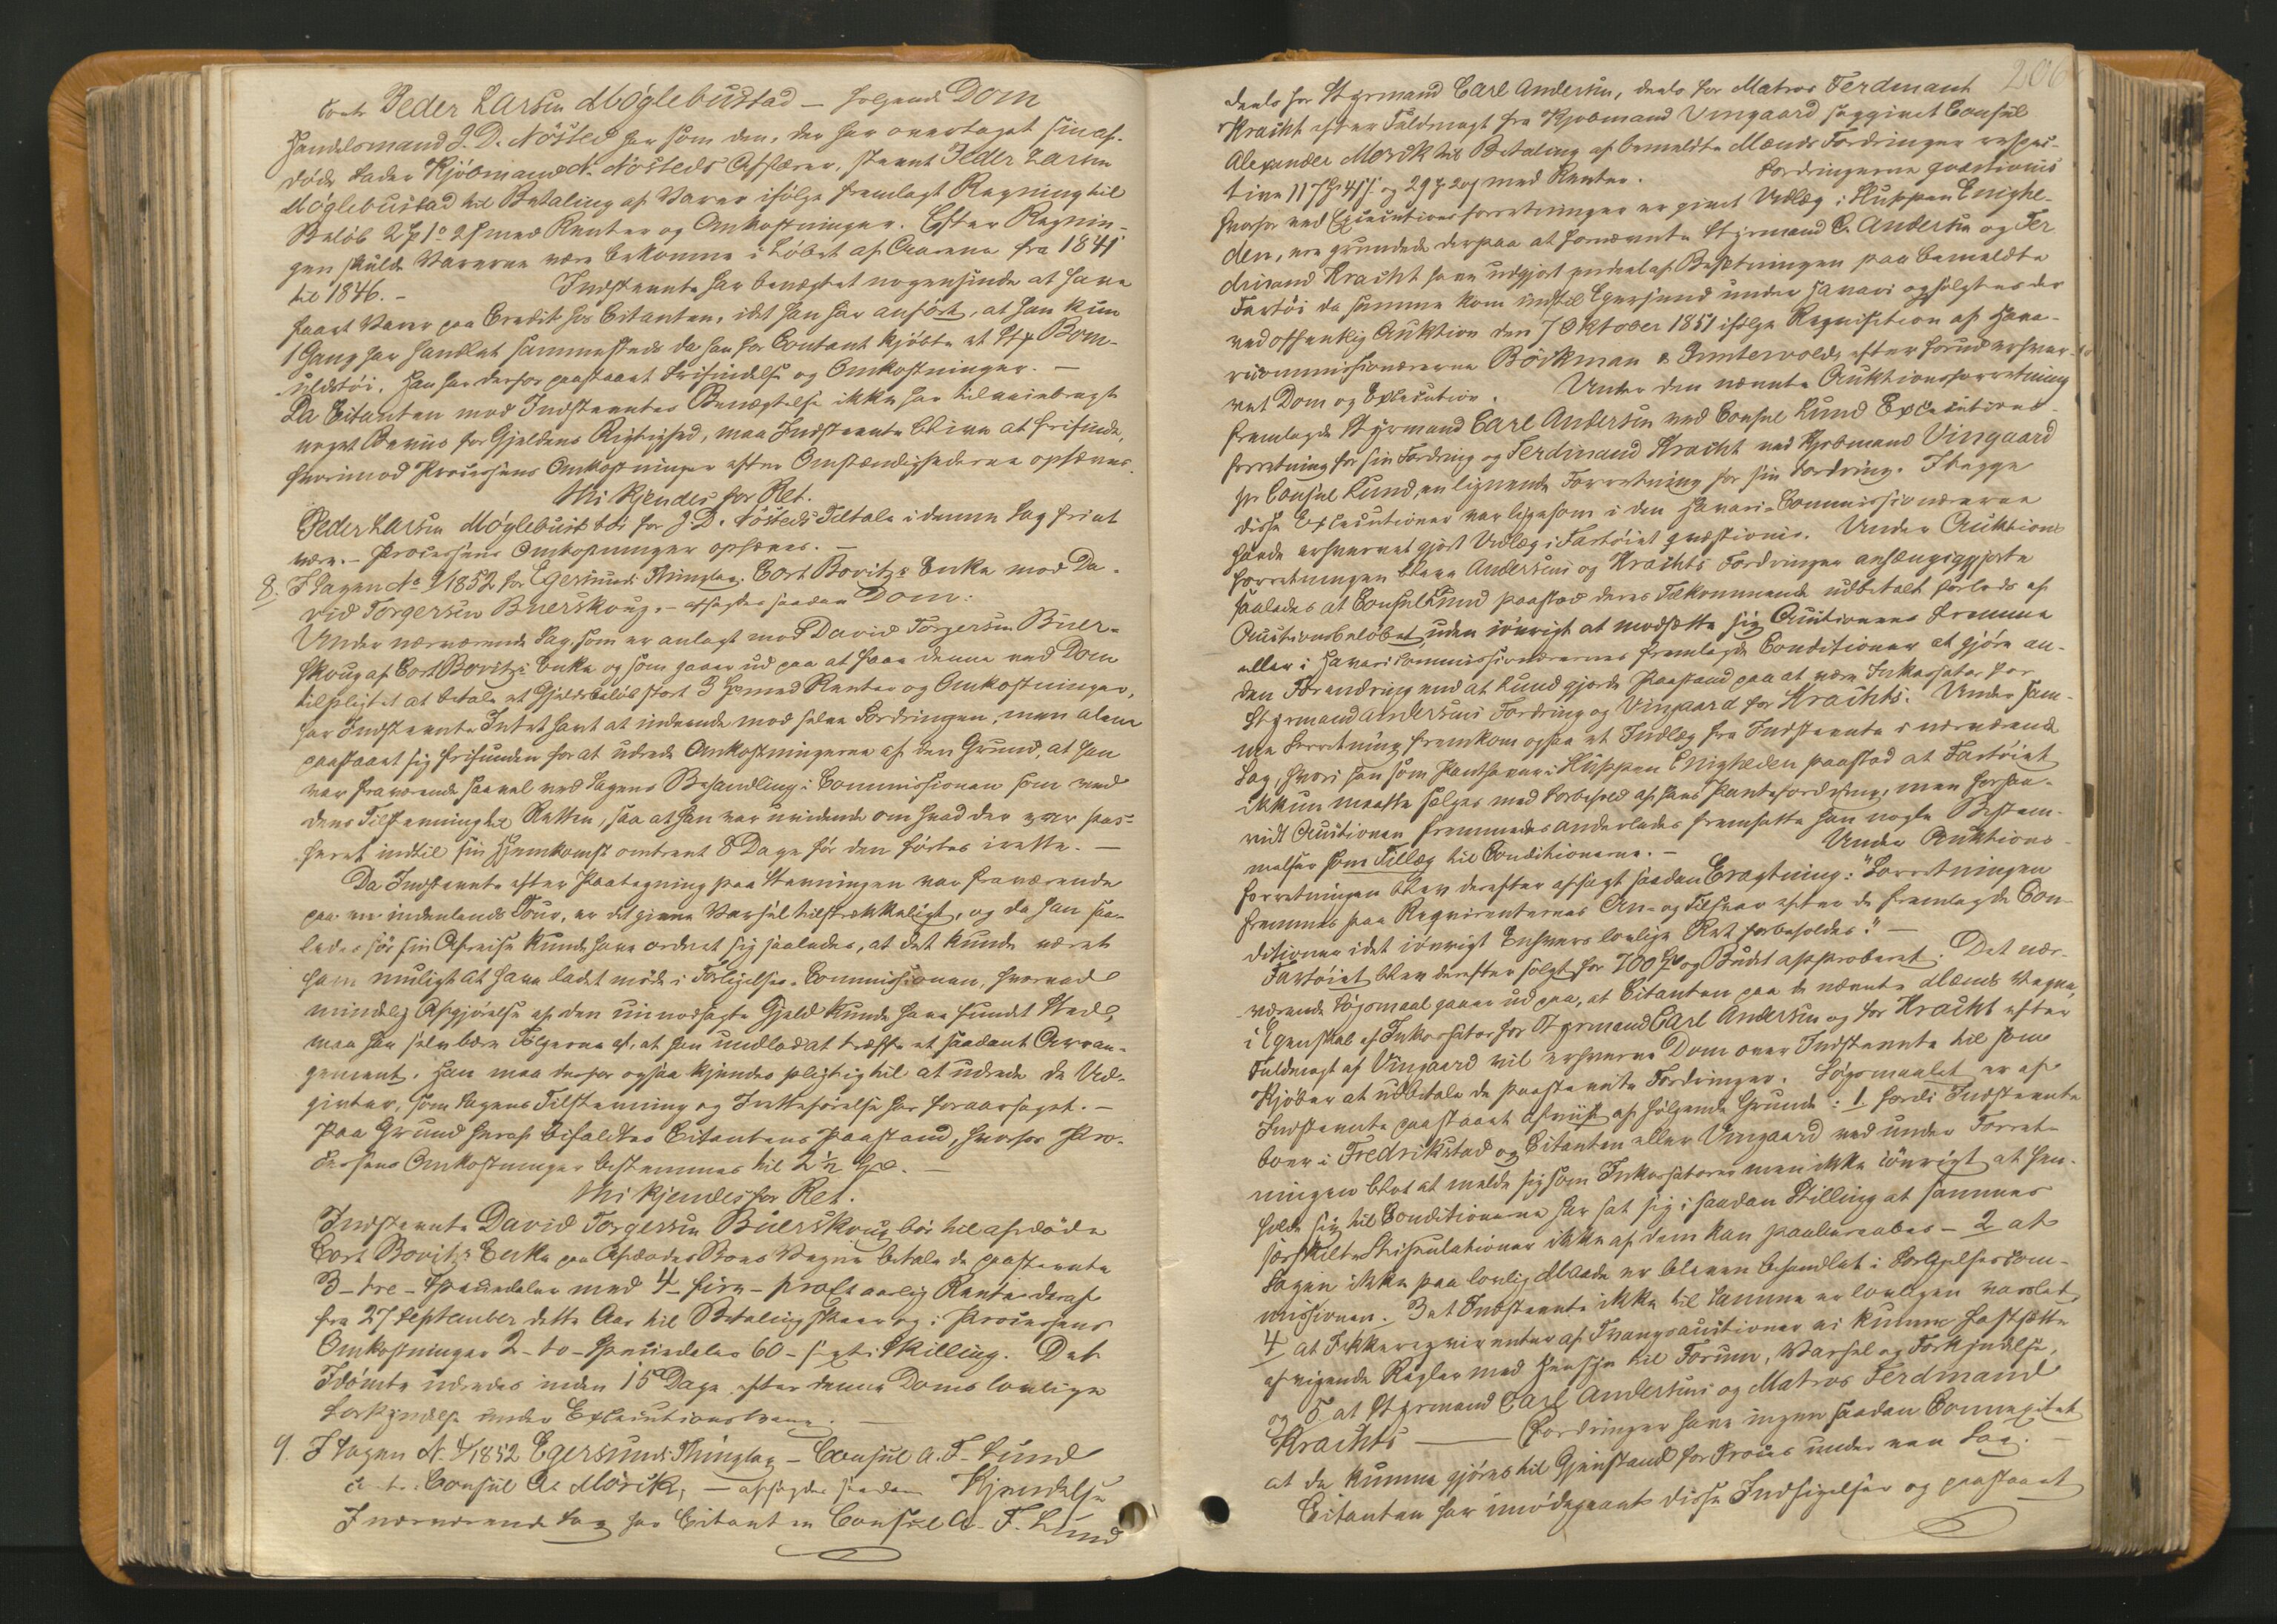 contr Peder Larsen Møglebustad — følgende Dom
Handelsmand J. D. Nøsted har som den, der har overtaget sin af-
døde Fader Kjøbmand N. Nøsteds Affærer, stevnt Peder Larsen
Møglebustad til Betaling af Varer ifølge fremlagt Regning til
Beløb med Renter og Omkostninger. Efter Regnin-
gen skulde Varerne være bekomne i Løbet af Aarene fra 1841
til 1846. — Indstevnte har benægtet nogensinde at have
faaet Varer paa Credit hos Citanten, idet han har anført, at han kun
1 Gang har handlet sammesteds da han for Contant kjøbte et Stk Bom-
uldstøi. Han har derfor paastaaet Frifindelse og Omkostninger. —
Da Citanten mod Indstevntes Benægtelse ikke har tilveiebragt
noget Beviis for Gjeldens Rigtighed, maa Indstevnte blive at frifinde,
hvorimod Processens Omkostninger efter Omstændighederne ophæves.
Thi kjendes for Ret.
Peder Larsen Møglebust bør for J. D. Nøsteds Tiltale i denne Sag fri at
være. — Processens Omkostninger ophæves. —
8. I Sagen No 1852 for Egersunds Thinglag. Cort Bovitz's Enke mod Da-
vid Torgersen Buerskoug. — afsagdes saadan Dom:
Under nærværende Sag, som er anlagt mod David Torgersen Buer-
skoug af Cort Bovitz's Enke og som gaaer ud paa at faae denne ved Dom
tilpligtet at betale et Gjeldsbeløb stort 3 Spd med Renter og Omkostninger,
har Indstevnte Intet havt at indvende mod selve Fordringen, men alene
paastaaet sig frifunden for at udrede Omkostningerne af den Grund, at han
var fraværende saavel ved Sagens Behandling i Commissionen som ved
dens Tilstevning til Retten, saa at han var uvidende om hvad der var pas-
seret indtil sin Hjemkomst omtrent 8 Dage før den førtes irette. —
Da Indstevnte efter Paategning paa Stevningen var fraværende
paa en indenlands Tour, er det givne Varsel tilstrækkeligt, og da han saa-
ledes før sin Afreise kunde have ordnet sig saaledes, at det kunde været
ham muligt at have ladet møde i Forligelses-Commissionen, hvorved
mindelig Afgjørelse af den uimodsagte Gjeld kunde have fundet Sted,
maa han selv bære Følgerne af, at han undlod at træffe et saadant Arran-
gement. Han maa derfor ogsaa kjendes pligtig til at udrede de Ud-
givter, som Sagens Tilstevning og Irettesførelse har foraarsaget. —
Paa Grund heraf bifaldtes Citantens Paastand, hvorfor Pro-
cessens Omkostninger bestemmes til 2½ Spd. —
Thi kjendes for Ret.
Indstevnte David Torgersen Buerskoug bør til afdøde
Cort Bovitz's Enke paa Afdødes Boes Vegne betale de paastevnte
3 – tre – Speciedaler med 4 – fire – proCt aarlig Renter deraf
fra 27 September dette Aar til Betaling skeer og i Processens
Omkostninger 2 – to – Speciedaler 60 – sexti Skilling. Det
Idømte udredes inden 15 Dage efter denne Doms lovlige
Forkyndelse under Executionstvang. —
9. I Sagen No 4/1852 Egersunds Thinglag — Consul A. F. Lund
ctr. Consul A. Mørck, — afsagdes saadan Kjendelse
I nærværende Sag har Citanten Consul A. F. Lund
206
deels for Styrmand Carl Andersen, deels for Matros Ferdinant
Kracht efter Fuldmagt fra Kjøbmand Vingaard sagsøgt Consul
Alexander Mørck til Betaling af bemeldte Mænds Fordringer respec-
tive med Renter. Fordringerne qvæstionis
hvorfor ved Executionsforretninger er givet Udlæg i Skuppen Enighe-
den, ere grundede derpaa at fornævnte Styrmand C. Andersen og Fer-
dinand Kracht have udgjort en deel af Besetningen paa bemeldte
Fartøi da samme kom ind til Egersund under Havari og solgtes der
ved offentlig Auktion den 7 Oktober 1851 ifølge Reqvisition af Hava-
ricommissionærerne Böckman & Puntervolds efter forud erhver-
vet Dom og Execution. Under den nævnte Auktionsforretning
fremlagde Styrmand Carl Andersen ved Consul Lund Executions-
forretning for sin Fordring og Ferdinand Kracht ved Kjøbmand Vingaard
pr Consul Lund, en lignende Forretning for sin Fordring. I begge
disse Executioner var ligesom i den Havari-Commissionærerne
havde erhvervet gjort Udlæg i Fartøiet qvæstionis. Under Auktions
forretningen bleve Andersens og Krachts Fordringer
saaledes at Consul Lund paastod deres Tilkommende udbetalt forlods af
Auctionsbeløbet, uden iøvrigt at modsætte sig Auctionens Fremme
eller i Havaricommissionærernes fremlagde Conditioner at gjøre an-
den Forandring end at Lund gjorde Paastand paa at være Inkassator for
Styrmand Andersens Fordring og Vingaard for Krachts. Under sam-
me Forretning fremkom ogsaa et Indlæg fra Indstevnte i nærværende
Sag, hvori han som Panthaver i Skuppen Enigheden paastod at Fartøiet
ikkun maatte sælges med Forbehold af hans Pantefordring, men forsaa-
vidt Auctionen fremmedes anderledes fremsatte han nogle Bestem-
melser som Tillæg til Conditionerne. — Under Auktions-
forretningen blev derefter afsagt saadan Eragtning: "Forretningen
fremmes paa Reqvirenternes An- og Tilsvar efter de fremlagde Con-
ditioner idet iøvrigt Enhvers lovlige Ret forbeholdes." —
Fartøiet blev derefter solgt for 700 Spd og Budet approberet. Det nær-
værende Søgsmaal gaaer ud paa, at Citanten paa de nævnte Mænds Vegne,
i Egenskab af Inkassator for Styrmand Carl Andersen og for Kracht efter
Fuldmagt af Vingaard vil erhverve Dom over Indstevnte til som
Kjøber at udbetale de paastevnte Fordringer. Søgsmaalet er af
Indstevnte paastaaet afviist af følgende Grunde: 1. fordi Indstevnte
boer i Fredrikstad og Citanten eller Vingaard ved under Forret-
ningen blot at melde sig som Inkassatorer men ikke iøvrigt at hen-
holde sig til Conditionerne har sat sig i saadan Stilling at sammes
særskilte Stipulationer ikke af dem kan paaberaabes — 2 at
Sagen ikke paa lovlig Maade er bleven behandlet i Forligelsescom-
missionen. 3 at Indstevnte ikke til samme er lovligen varslet
4 at reqvirenter af Tvangsauctioner ei kunne fastsætte
afvigende Regler med Hensyn til Forum, Varsel og Forkyndelse,
og 5 at Styrmand Carl Andersens og Matros Ferdinand
Krachts — Fordringer have ingen saadan Connexitet
at de kunne gjøres til Gjenstand for Proces under een Sag. —
Citanten har imødegaaet disse Indsigelser og paastaaet